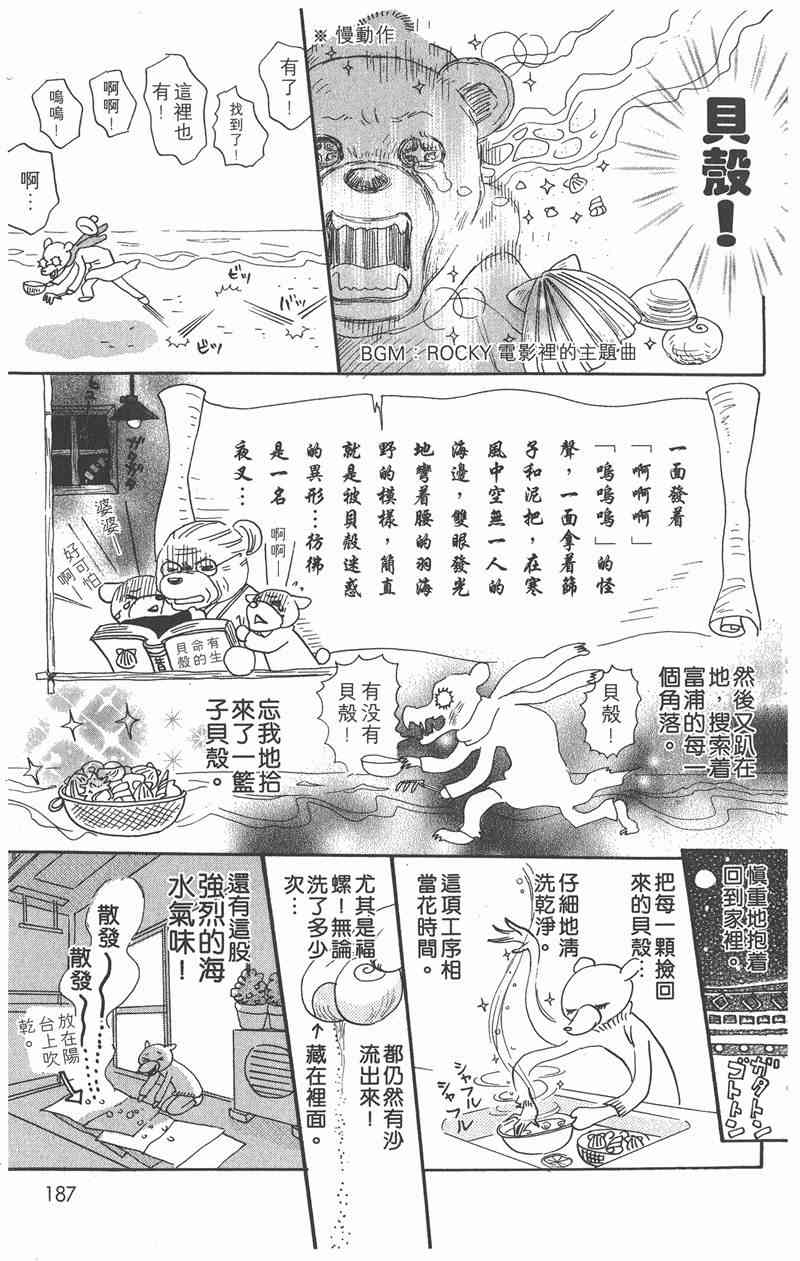 貝殼！
※ 慢動作
BGM：ROCKY 電影裡的主題曲
有了！
找到了！
這裡也
有！
啊啊！
嗚嗚！
啊…
ビッ
ビッ
ビッ
一面發着
「啊啊啊」
「嗚嗚嗚」的怪
聲，一面拿着篩
子和泥把，在寒
風中空無一人的
海邊，雙眼發光
地彎着腰的羽海
野的模樣，簡直
就是被貝殼迷惑
的異形…彷彿
是一名
夜叉…
ガタガタ
啊啊─
婆婆─
好可怕
啊─
有生
命的
貝殼
然後又趴在
地，搜索着
富浦的每一
個角落。
貝殼！
有沒有
貝殼！
忘我地拾
來了一籃
子貝殼。
慎重地抱着
回到家裡。
ガタトン
ゴトトン
把每一顆撿回
來的貝殼…
仔細地清
洗乾淨。
這項工序相
當花時間。
シャフル
シャフル
尤其是福
螺！無論
洗了多少
次…
都仍然有沙
流出來！
←藏在裡面。
還有這股
強烈的海
水氣味！
散發
散發
放在陽
台上吹
乾。
187